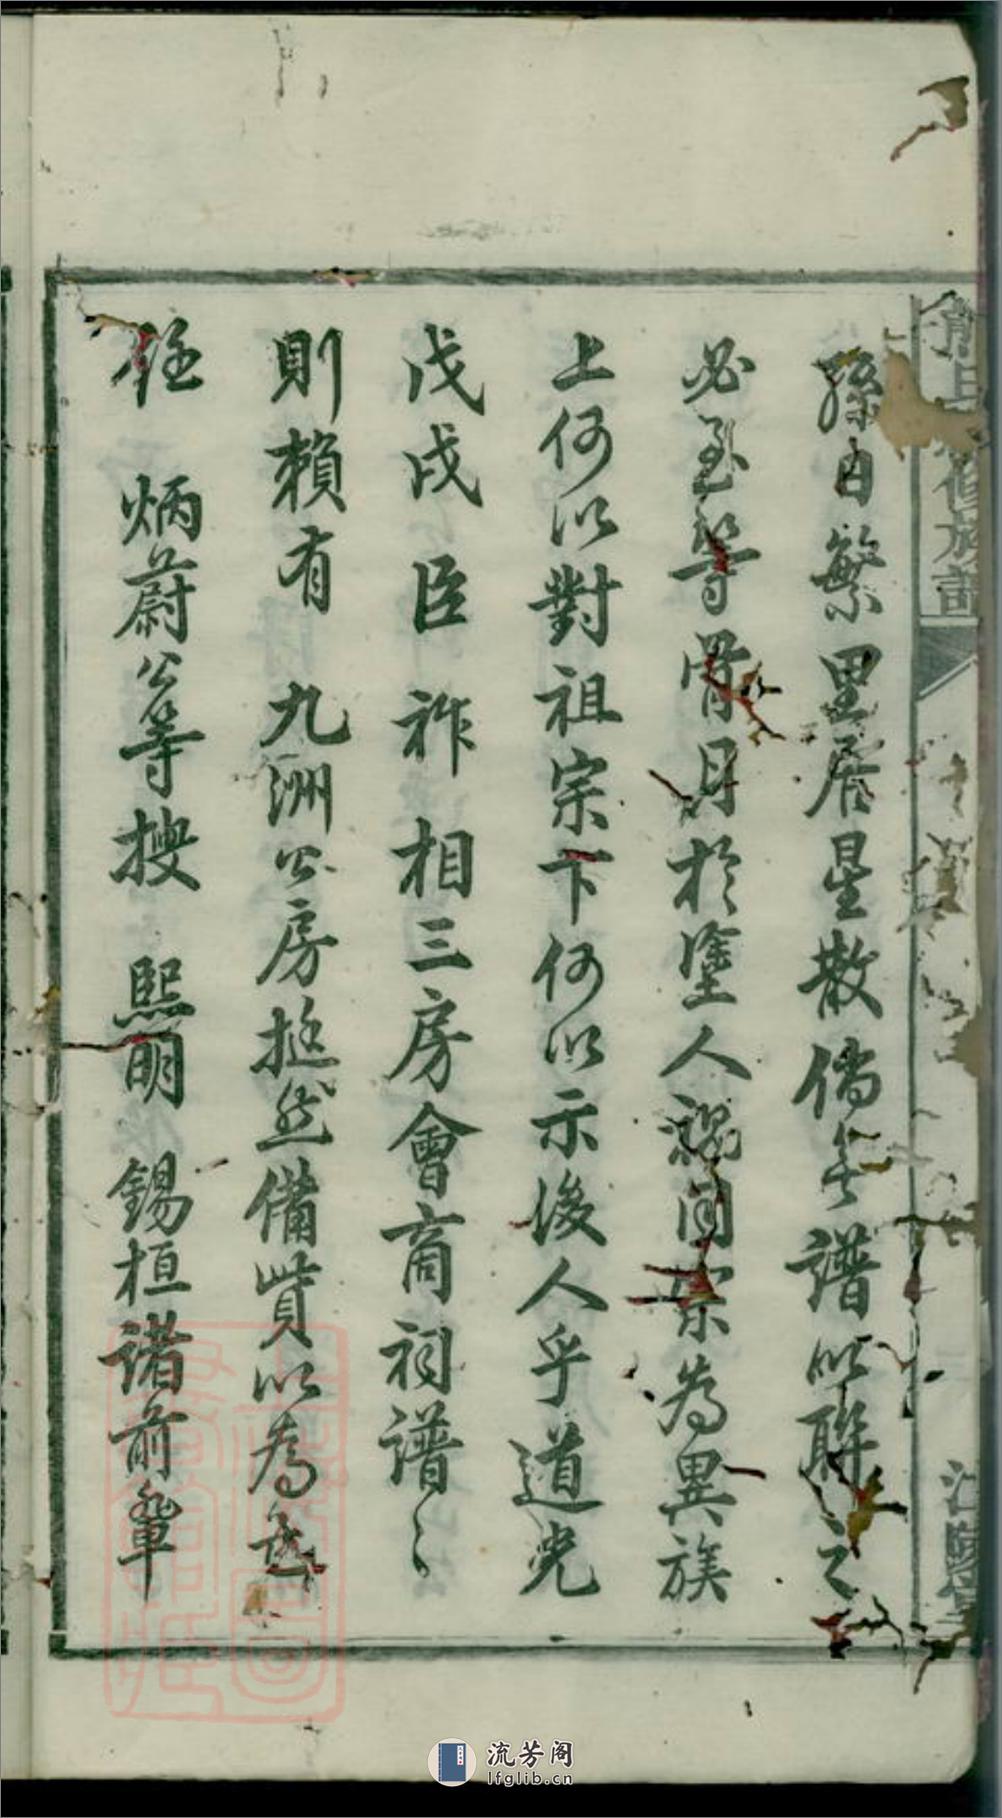 孫日繁里居星散倘無譜以聯之
必至等骨肉於塗人視同宗為異族
上何以對祖宗下何以示後人乎道光
戊戌臣祚相三房會商祠譜〻
則賴有 九洲公房挺然備貲以為
任 炳蔚公等搜 熙明 錫桓諸前輩
修族譜
江陵堂
流芳阁
lfglib.cn